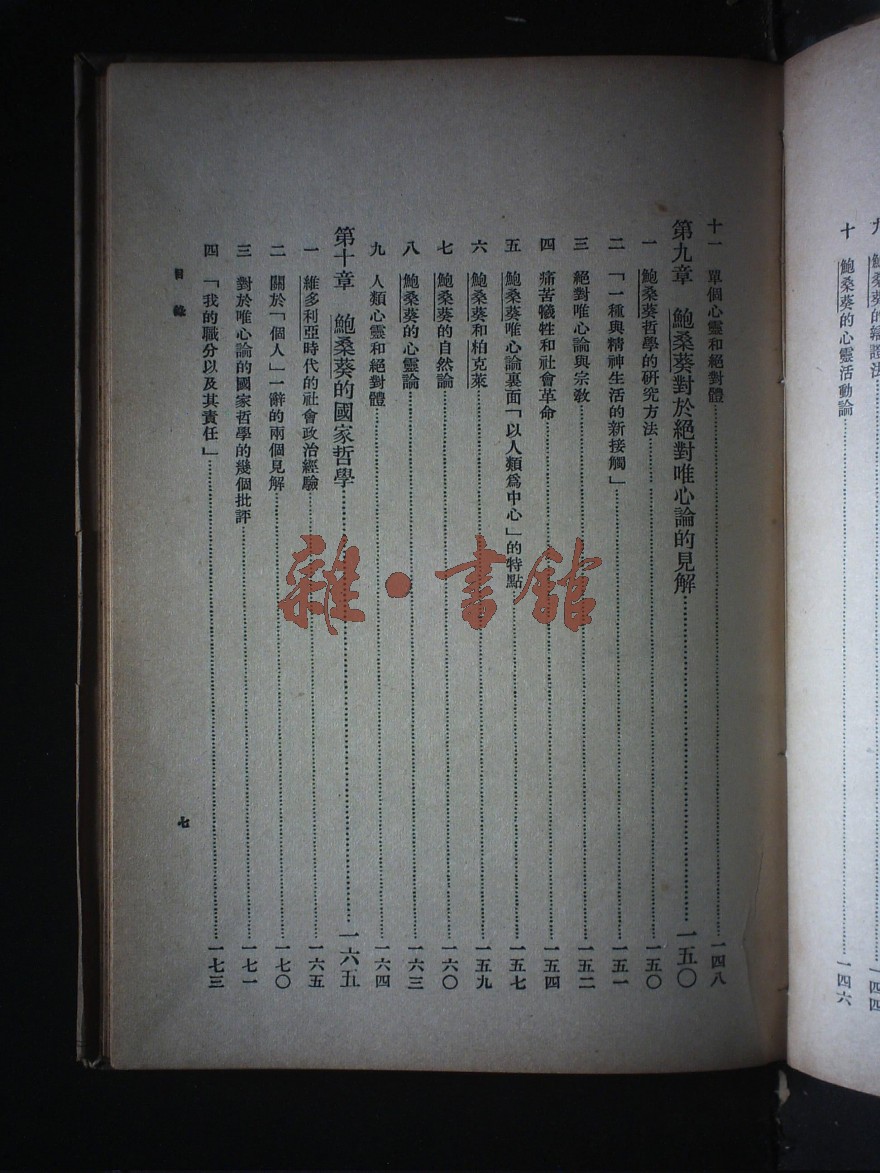 鮑桑葵的辯證法……一四四
十　鮑桑葵的心靈活動論……一四六
十一　單個心靈和絕對體……一四八
第九章　鮑桑葵對於絕對唯心論的見解……一五〇
一　鮑桑葵哲學的研究方法……一五〇
二　「一種與精神生活的新接觸」……一五一
三　絕對唯心論與宗教……一五二
四　痛苦犧牲和社會革命……一五四
五　鮑桑葵唯心論裏面「以人類爲中心」的特點……一五七
六　鮑桑葵和柏克萊……一五九
七　鮑桑葵的自然論……一六〇
八　鮑桑葵的心靈論……一六三
九　人類心靈和絕對體……一六四
第十章　鮑桑葵的國家哲學……一六五
一　維多利亞時代的社會政治經驗……一六五
二　關於「個人」一辭的兩個見解……一七〇
三　對於唯心論的國家哲學的幾個批評……一七一
四　「我的職分以及其責任」……一七三
目錄
七
雜·書館